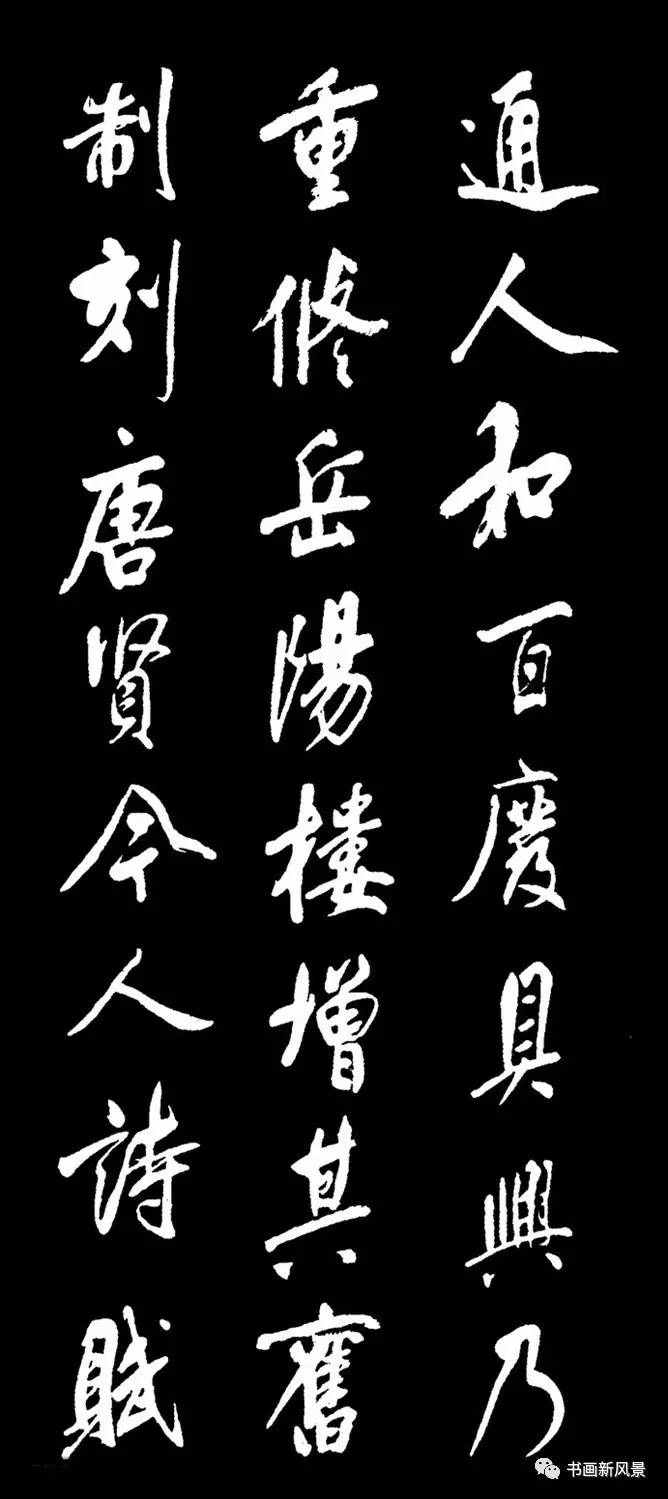 通人和百廢具興乃
重修岳陽樓增其舊
制刻唐賢今人詩賦
书画新风景